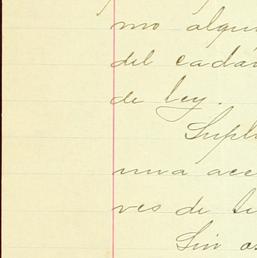 mo algu
del cadá
de ley.
Supl
una ace
ves de
Sin